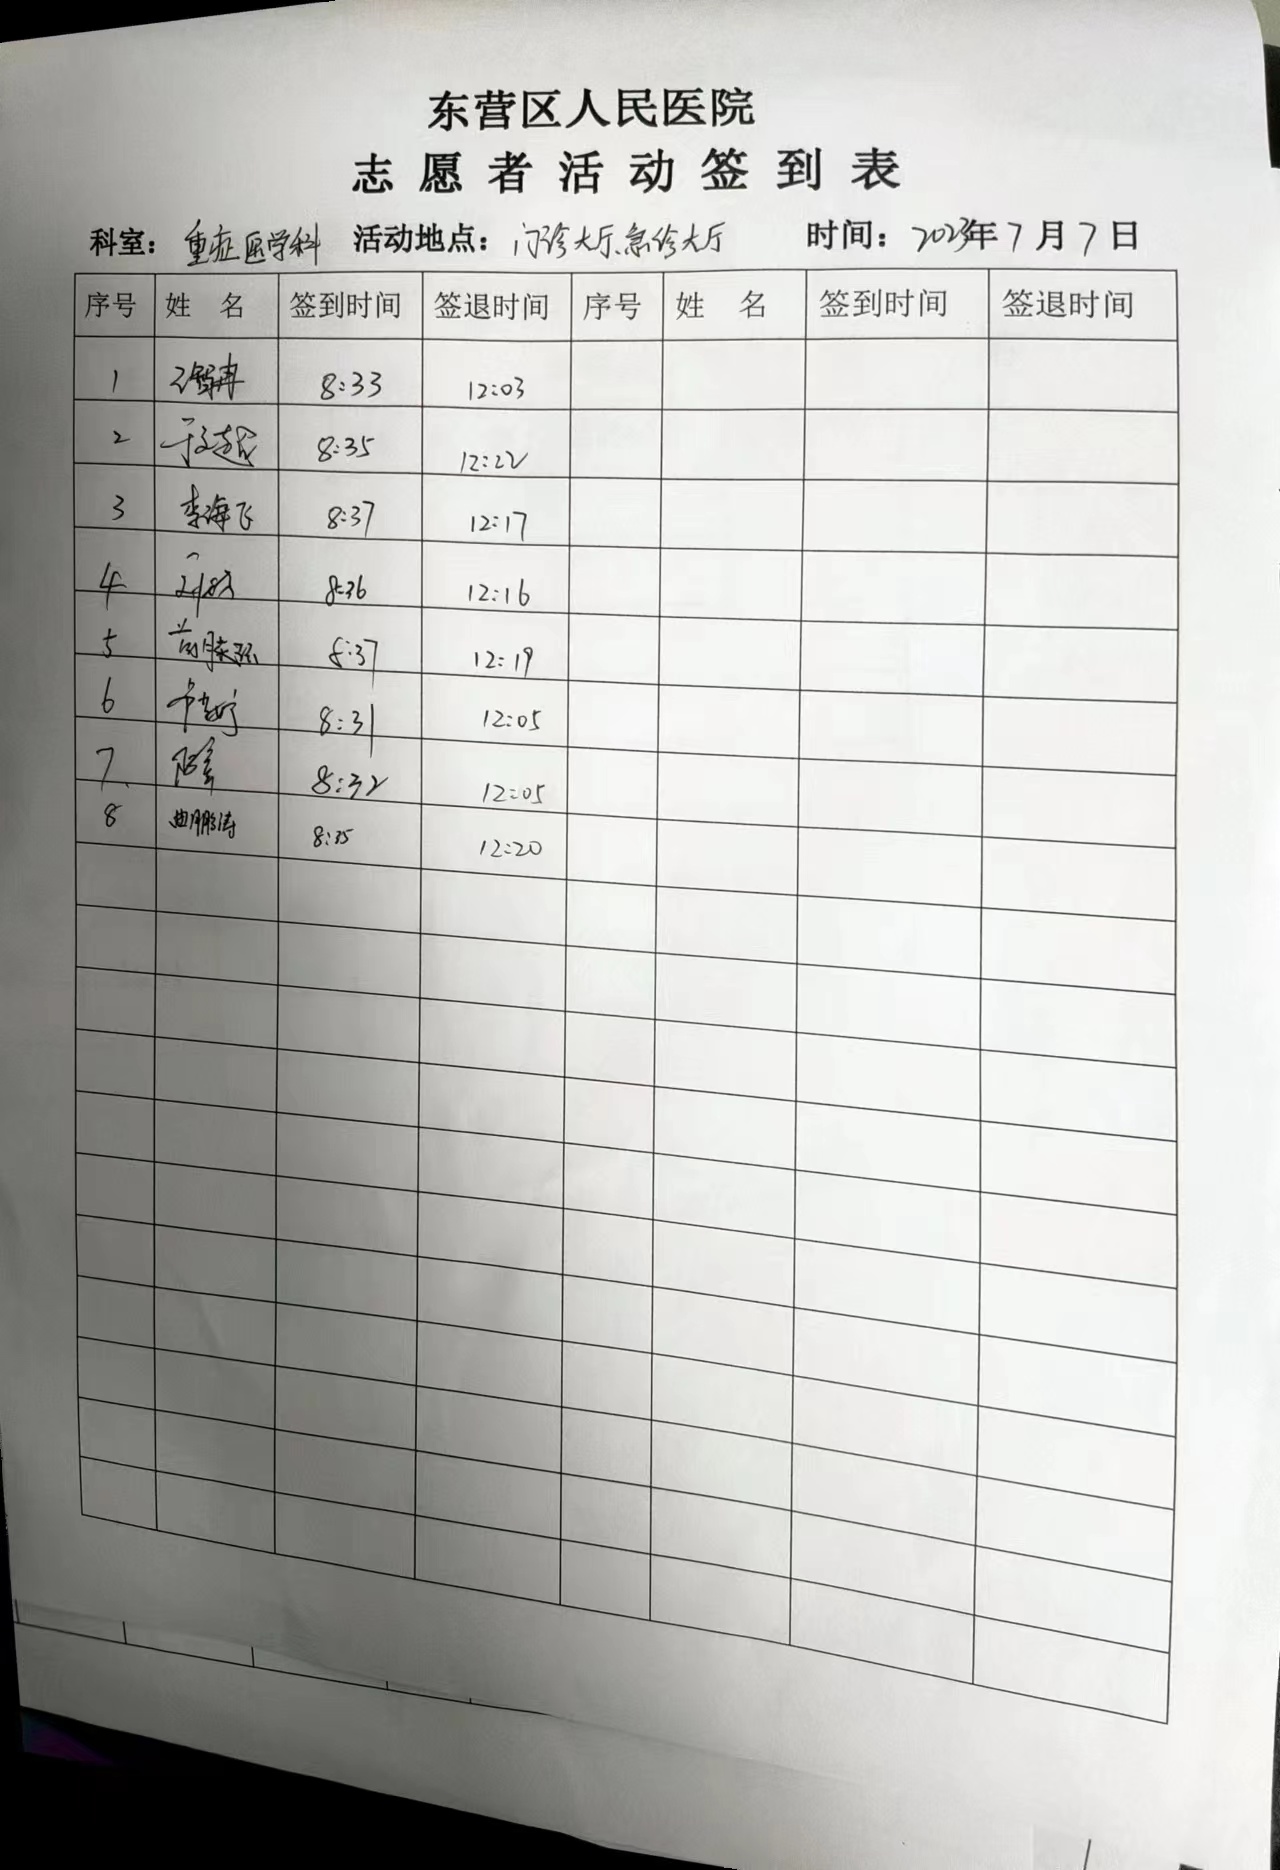 东营区人民医院
志愿者活动签到表
科室：重症医学科 活动地点：门诊大厅、急诊大厅 时间：2023年7月7日
序号 姓名 签到时间 签退时间 序号 姓名 签到时间 签退时间
1 8:33 12:03
2 8:35 12:22
3 李海飞 8:37 12:17
4 8:36 12:16
5 8:37 12:19
6 8:31 12:05
7 8:32 12:05
8 曲鹏涛 8:35 12:20